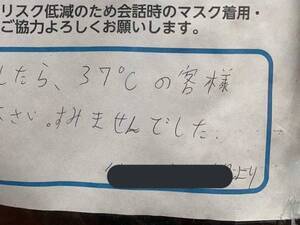 リスク低減のため会話時のマスク着用・
ご協力よろしくお願いします。
したら、37℃の客様
ださい。すみませんでした.
より